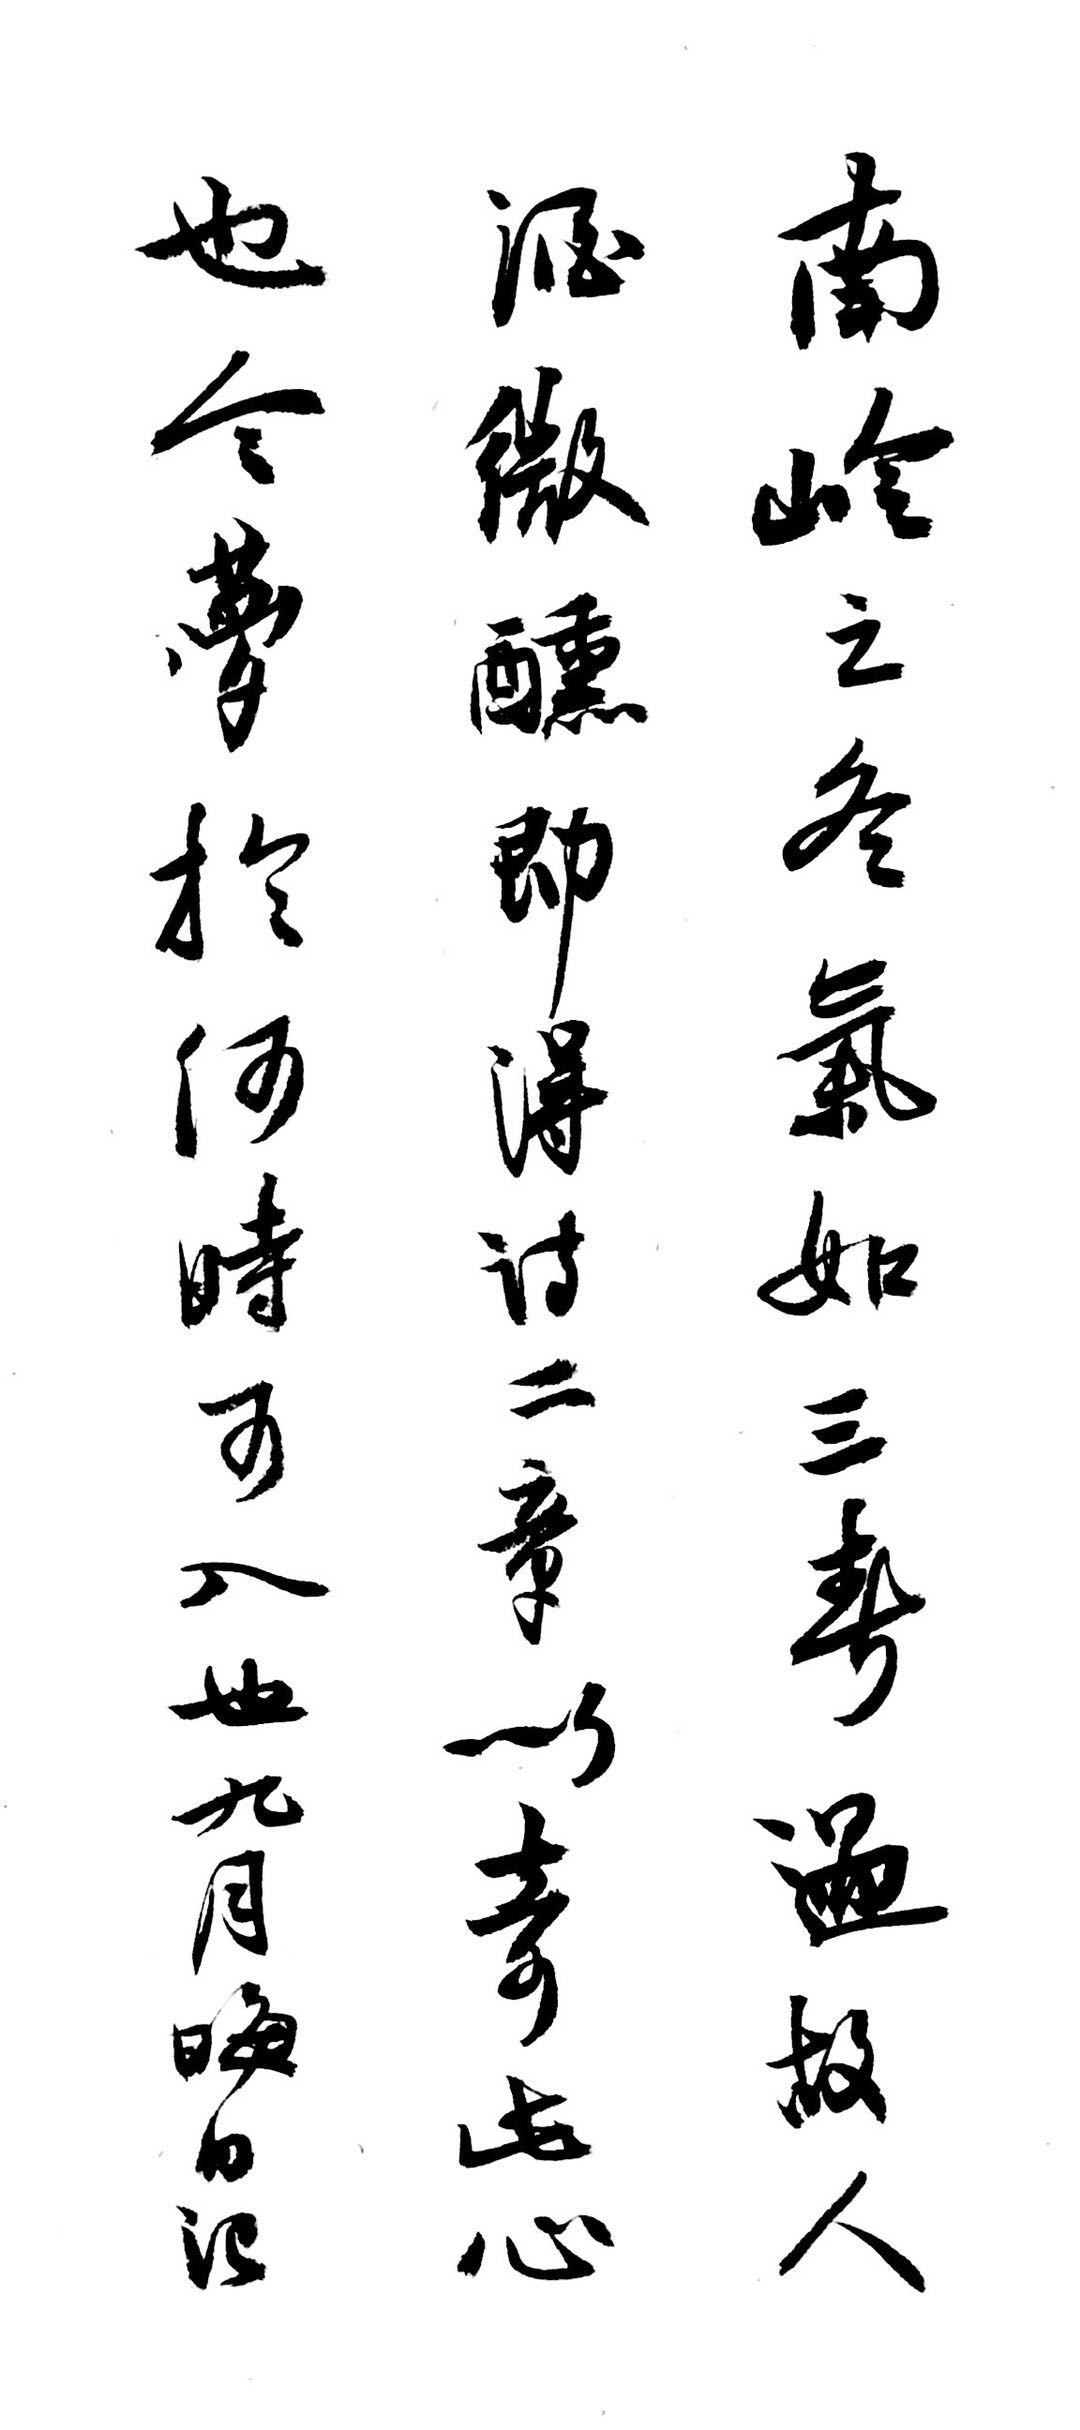 南嶺之冬氣如三春溫故人
酒微醺即得詩二章以寄此心
也今夢於何時可入也九月晦日記